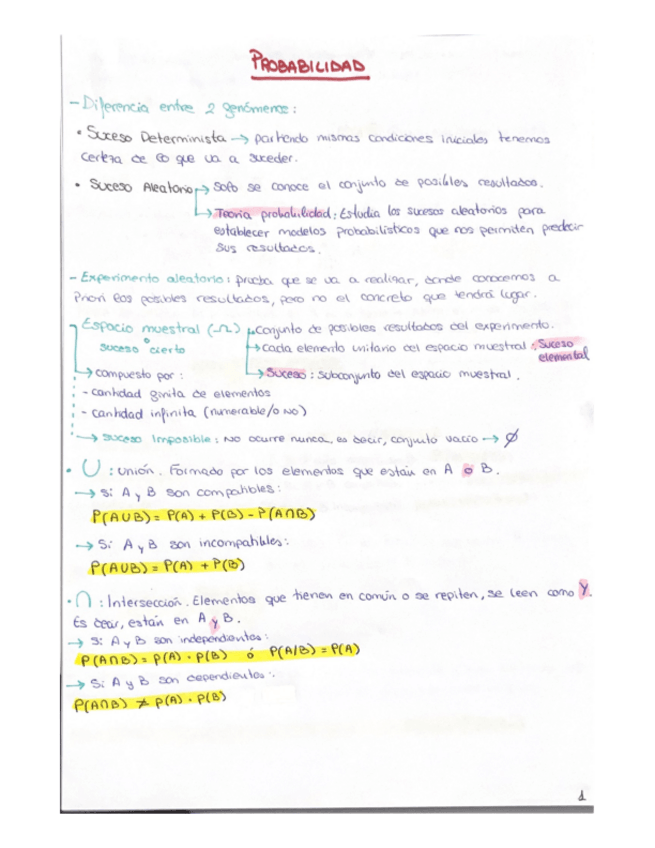 PROBABILIDAD
- Diferencia entre 2 fenómenos:
• Suceso Determinista → partiendo mismas condiciones iniciales tenemos
certeza de lo que va a suceder.
• Suceso Aleatorio → Solo se conoce el conjunto de posibles resultados.
→ Teoría probabilidad: Estudia los sucesos aleatorios para
establecer modelos probabilísticos que nos permiten predecir
sus resultados.
- Experimento aleatorio: prueba que se va a realizar, donde conocemos a
priori los posibles resultados, pero no el concreto que tendrá lugar.
Espacio muestral (Ω) → conjunto de posibles resultados del experimento.
o
suceso cierto → cada elemento unitario del espacio muestral: Suceso
elemental
→ compuesto por: → Suceso: subconjunto del espacio muestral.
- cantidad finita de elementos
- cantidad infinita (numerable/o no)
→ suceso Imposible: No ocurre nunca, es decir, conjunto vacío → ∅
• U: unión. Formado por los elementos que están en A o B.
→ Si A y B son compatibles:
P(A∪B) = P(A) + P(B) - P(A∩B)
→ Si A y B son incompatibles:
P(A∪B) = P(A) + P(B)
• ∩: Intersección. Elementos que tienen en común o se repiten, se leen como Y.
Es decir, están en A y B.
→ Si A y B son independientes:
P(A∩B) = P(A) · P(B) ó P(A/B) = P(A)
→ Si A y B son dependientes:
P(A∩B) ≠ P(A) · P(B)
1